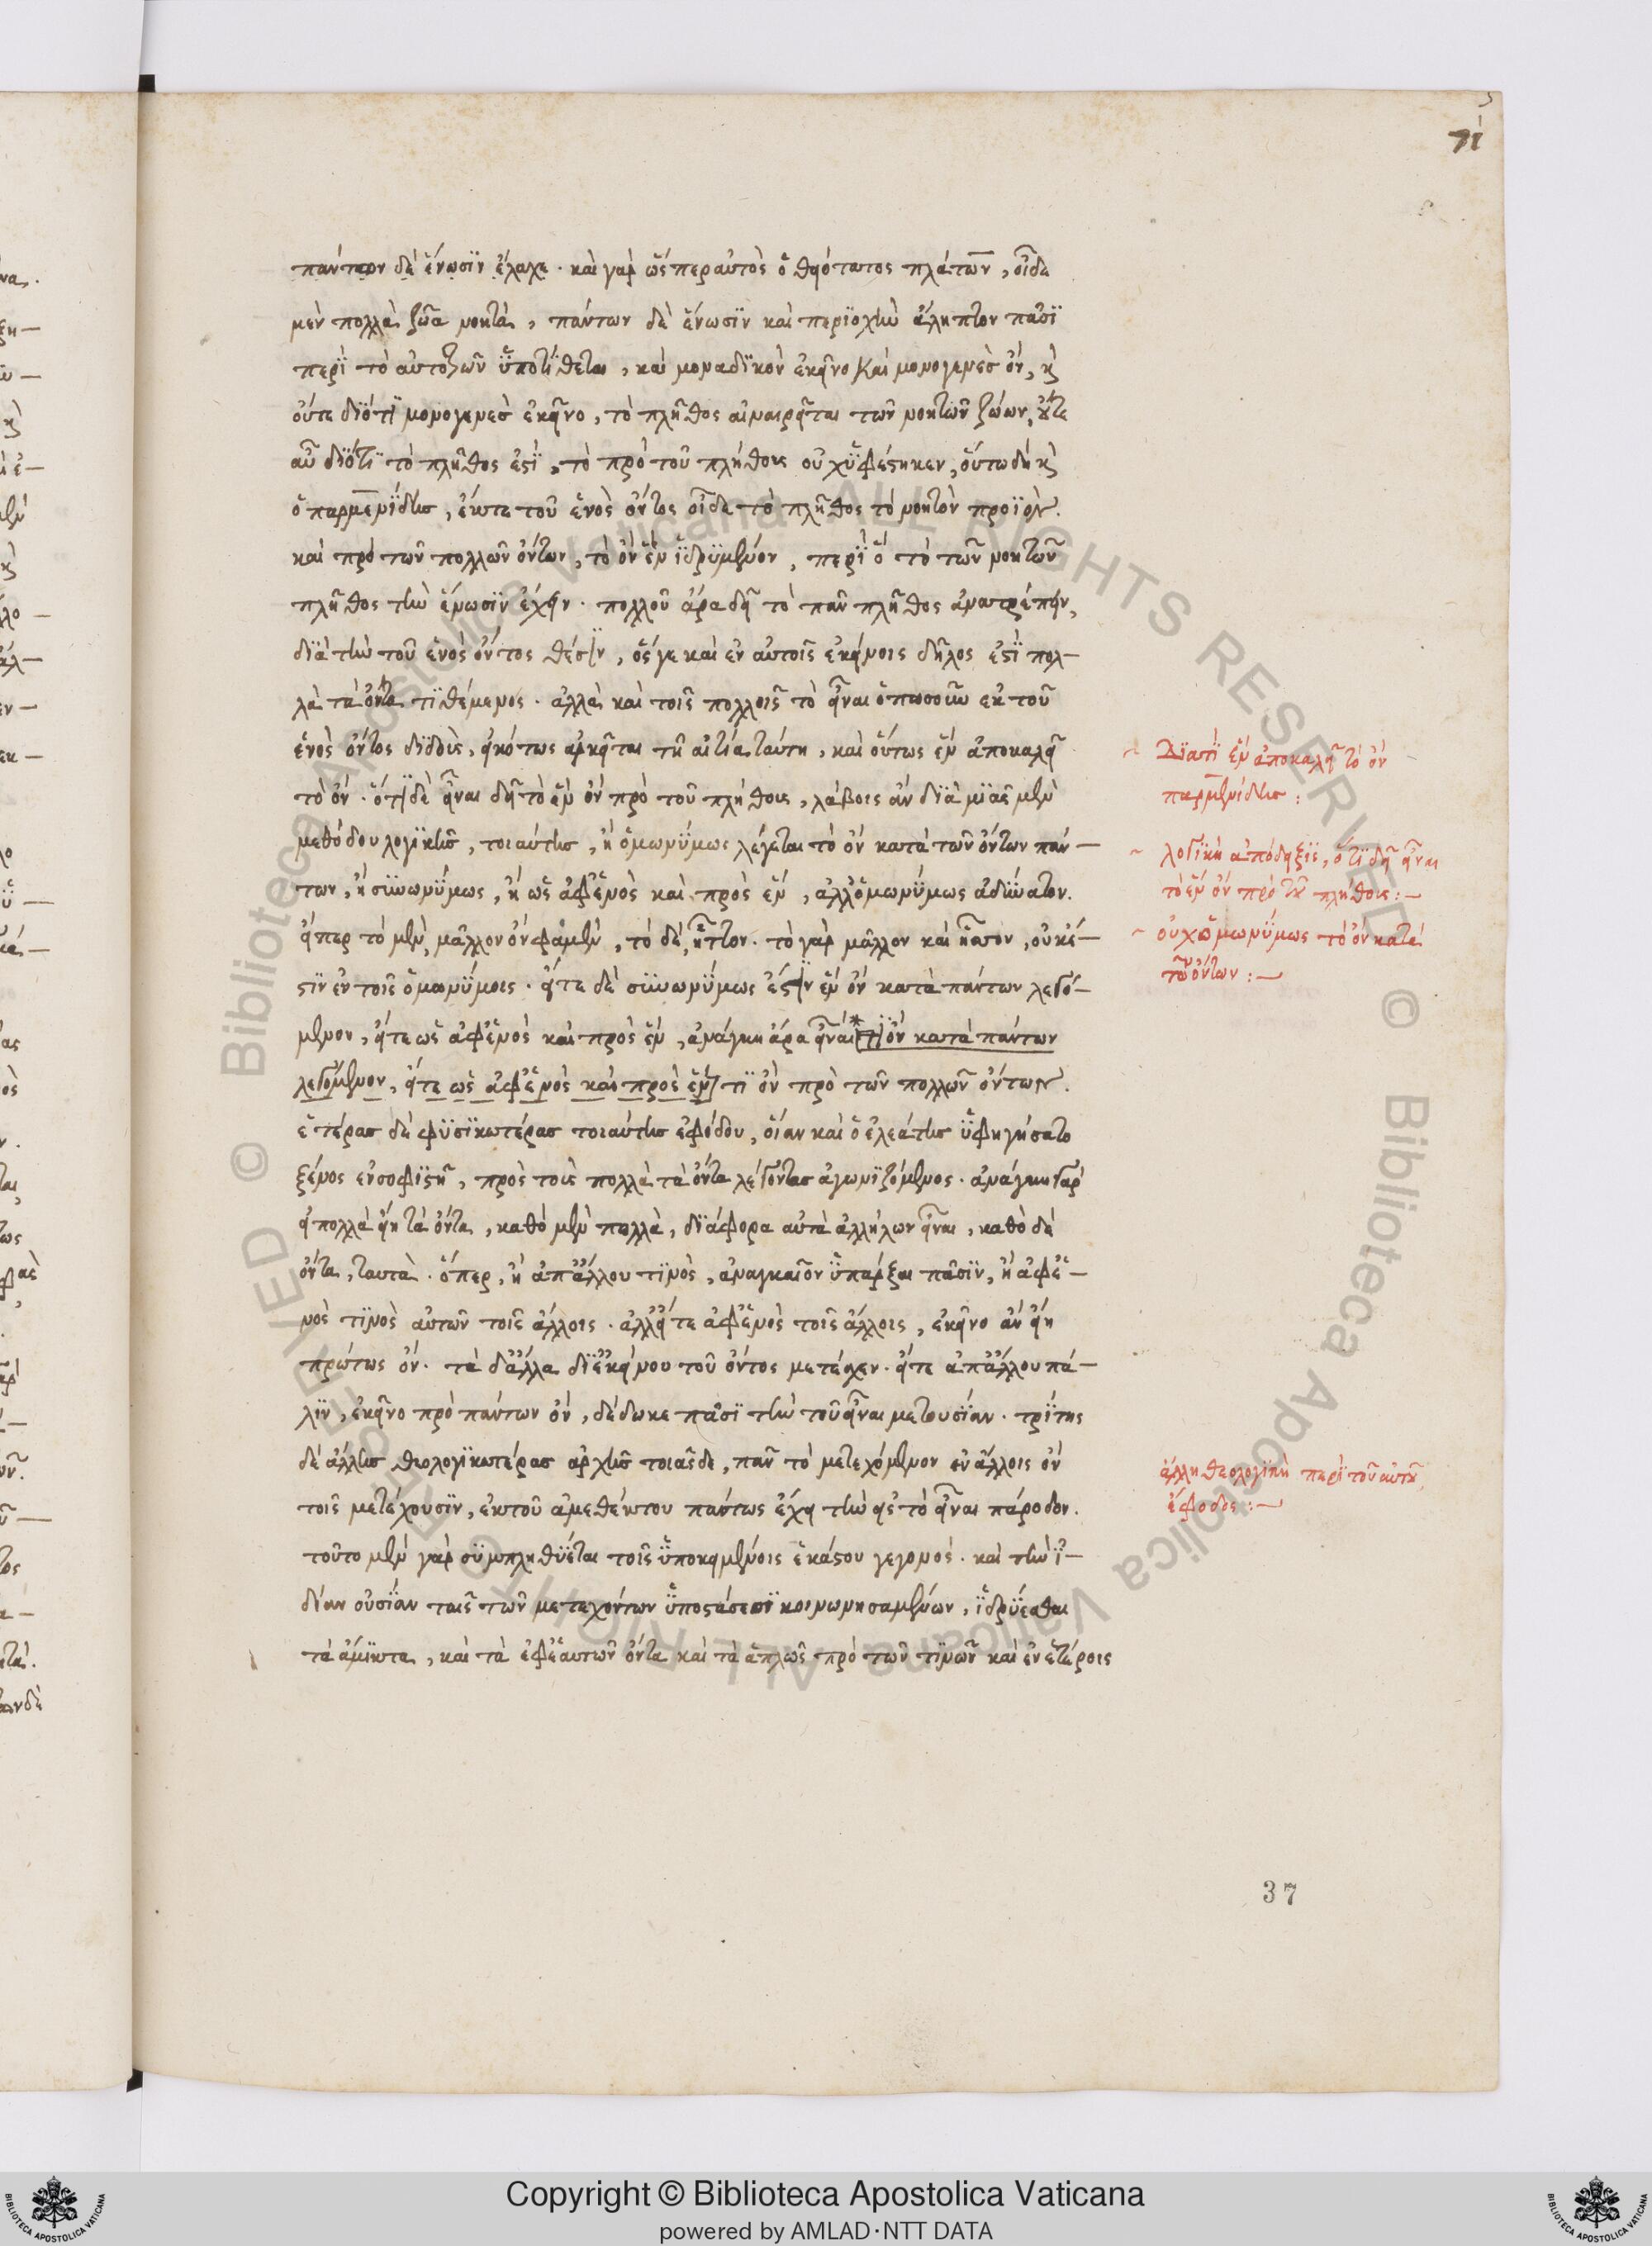 71
πάντων δὲ ἕνωσϊν ἔλαχε · καὶ γὰρ ὥσπερ αὐτὸς ὁ θειότατος πλάτων, οἶδε
μὲν πολλὰ ζῶα νοητὰ, πάντων δὲ ἕνωσϊν καὶ περϊοχὴν ἄληπτον πᾶσϊ
περὶ τὸ αὐτοζῶν ὑποτίθεται, καὶ μοναδϊκὸν ἐκεῖνο καὶ μονογενὲς ὄν, κ̀
οὔτε δϊότϊ μονογενὲς ἐκεῖνο, τὸ πλῆθος ἀναιρεῖται τῶν νοητῶν ζώων, οὔτε
αὖ δϊότϊ τὸ πλῆθός ἐστϊ, τὸ πρὸ τοῦ πλήθους οὐχ ὑφέστηκεν, οὕτω δὴ κ̀
ὁ παρμενίδης, ἔκ τε τοῦ ἑνὸς ὄντος οἶδε τὸ πλῆθος τὸ νοητὸν προϊὸν.
καὶ πρὸ τῶν πολλῶν ὄντων, τὸ ὂν ἓν ἱδρυμένον, περὶ ὃ τὸ τῶν νοητῶν
πλῆθος τὴν ἕνωσϊν ἔχειν · πολλοῦ ἄρα δεῖ τὸ πᾶν πλῆθος ἀνατρέπειν,
δϊὰ τὴν τοῦ ἑνὸς ὄντος θέσϊν, ὅς γε καὶ ἐν αὐτοῖς ἐκείνοις δῆλος ἐστϊ πολ–
λὰ τὰ ὄντα τϊθέμενος · ἀλλὰ καὶ τοῖς πολλοῖς τὸ εἶναι ὁπωσοῦν ἐκ τοῦ
ἑνὸς ὄντος δϊδοὺς, εἰκότως ἀρκεῖται τῇ αἰτία ταύτη, καὶ οὕτως ἓν ἀποκαλεῖ
τὸ ὄν · ὅτϊ δὲ εἶναι δεῖ τὸ ἓν ὂν πρὸ τοῦ πλήθους, λάβοις ἂν δϊὰ μϊᾶς μὲν
μεθόδου λογϊκῆς, τοιαύτης, ἢ ὁμωνύμως λέγεται τὸ ὂν κατὰ τῶν ὄντων πάν–
των, ἢ συνωνύμως, ἢ ὡς ἀφ' ἑνὸς καὶ πρὸς ἓν, ἀλλ' ὁμωνύμως ἀδύνατον.
εἴπερ τὸ μὲν, μᾶλλον ὂν φαμὲν, τὸ δὲ, ἧττον · τὸ γὰρ μᾶλλον καὶ ἧσσον, οὐκ ἔ–
στϊν ἐν τοῖς ὁμωνύμοις · εἴτε δὲ συνωνύμως ἐστϊν ἓν ὂν κατὰ πάντων λεγό–
μενον, εἴτε ὡς ἀφ' ἑνὸς καὶ πρὸς ἓν, ἀνάγκη ἄρα εἶναί * τϊ ὂν κατὰ πάντων
λεγόμενον, εἴτε ὡς ἀφ' ἑνὸς καὶ πρὸς ἓν τϊ ὂν πρὸ τῶν πολλῶν ὄντων.
ἑτέρας δὲ φυσϊκωτέρας τοιαύτης ἐφόδου, οἵαν καὶ ὁ ἐλεάτης ὑφηγήσατο
ξένος ἐν σοφϊστῆ, πρὸς τοὺς πολλὰ τὰ ὄντα λέγοντας ἀγωνϊζόμενος · ἀνάγκη γὰρ
εἰ πολλὰ εἴη τὰ ὄντα, καθὸ μὲν πολλὰ, δϊάφορα αὐτὰ ἀλλήλων εἶναι, καθὸ δὲ
ὄντα, ταυτὰ · ὅπερ, ἢ ἀπ' ἄλλου τϊνὸς, ἀναγκαῖον ὑπάρξαι πᾶσϊν, ἢ ἀφ' ἑ–
νὸς τϊνὸς αὐτῶν τοῖς ἄλλοις · ἀλλ' εἴτε ἀφ' ἑνὸς τοῖς ἄλλοις, ἐκεῖνο ἂν εἴη
πρώτως ὄν · τὰ δ' ἄλλα δϊ' ἐκείνου τοῦ ὄντος μετέχεν · εἴτε ἀπ' ἄλλου πά–
λϊν, ἐκεῖνο πρὸ πάντων ὂν, δέδωκε πᾶσϊ τὴν τοῦ εἶναι μετουσίαν · τρίτης
δὲ ἄλλης θεολογϊκωτέρας ἀρχῆς τοιᾶσδε, πᾶν τὸ μετεχόμενον ἐν ἄλλοις ὂν
τοῖς μετέχουσϊν, ἐκ τοῦ ἀμεθέκτου πάντως ἔχει τὴν εἰς τὸ εἶναι πάροδον.
τοῦτο μὲν γὰρ συμπληθύεται τοῖς ὑποκειμένοις ἑκάστου γεγονός · καὶ τὴν ἰ–
δίαν οὐσίαν ταῖς τῶν μετεχόντων ὑποστάσεσϊ κοινωνησαμένων, ἱδρύεσθαι
τὰ ἀμϊκτα, καὶ τὰ ἐφ' ἑαυτῶν ὄντα καὶ τὰ ἁπλῶς πρὸ τῶν τϊνῶν καὶ ἐν ἑτέροις
Δϊατί ἓν ἀποκαλεῖ τὸ ὂν
παρμενίδης :
λογϊκὴ ἀπόδειξϊς, ὅτϊ δεῖ εἶναι
τὸ ἓν ὂν πρὸ τοῦ πλήθους : –
οὐχ ὁμωνύμως τὸ ὂν κατὰ
τῶν ὄντων : –
ἄλλη θεολογϊκὴ περὶ τοῦ αὐτοῦ
ἔφοδος : –
37
© Biblioteca Apostolica Vaticana ALL RIGHTS RESERVED
Copyright © Biblioteca Apostolica Vaticana
powered by AMLAD·NTT DATA